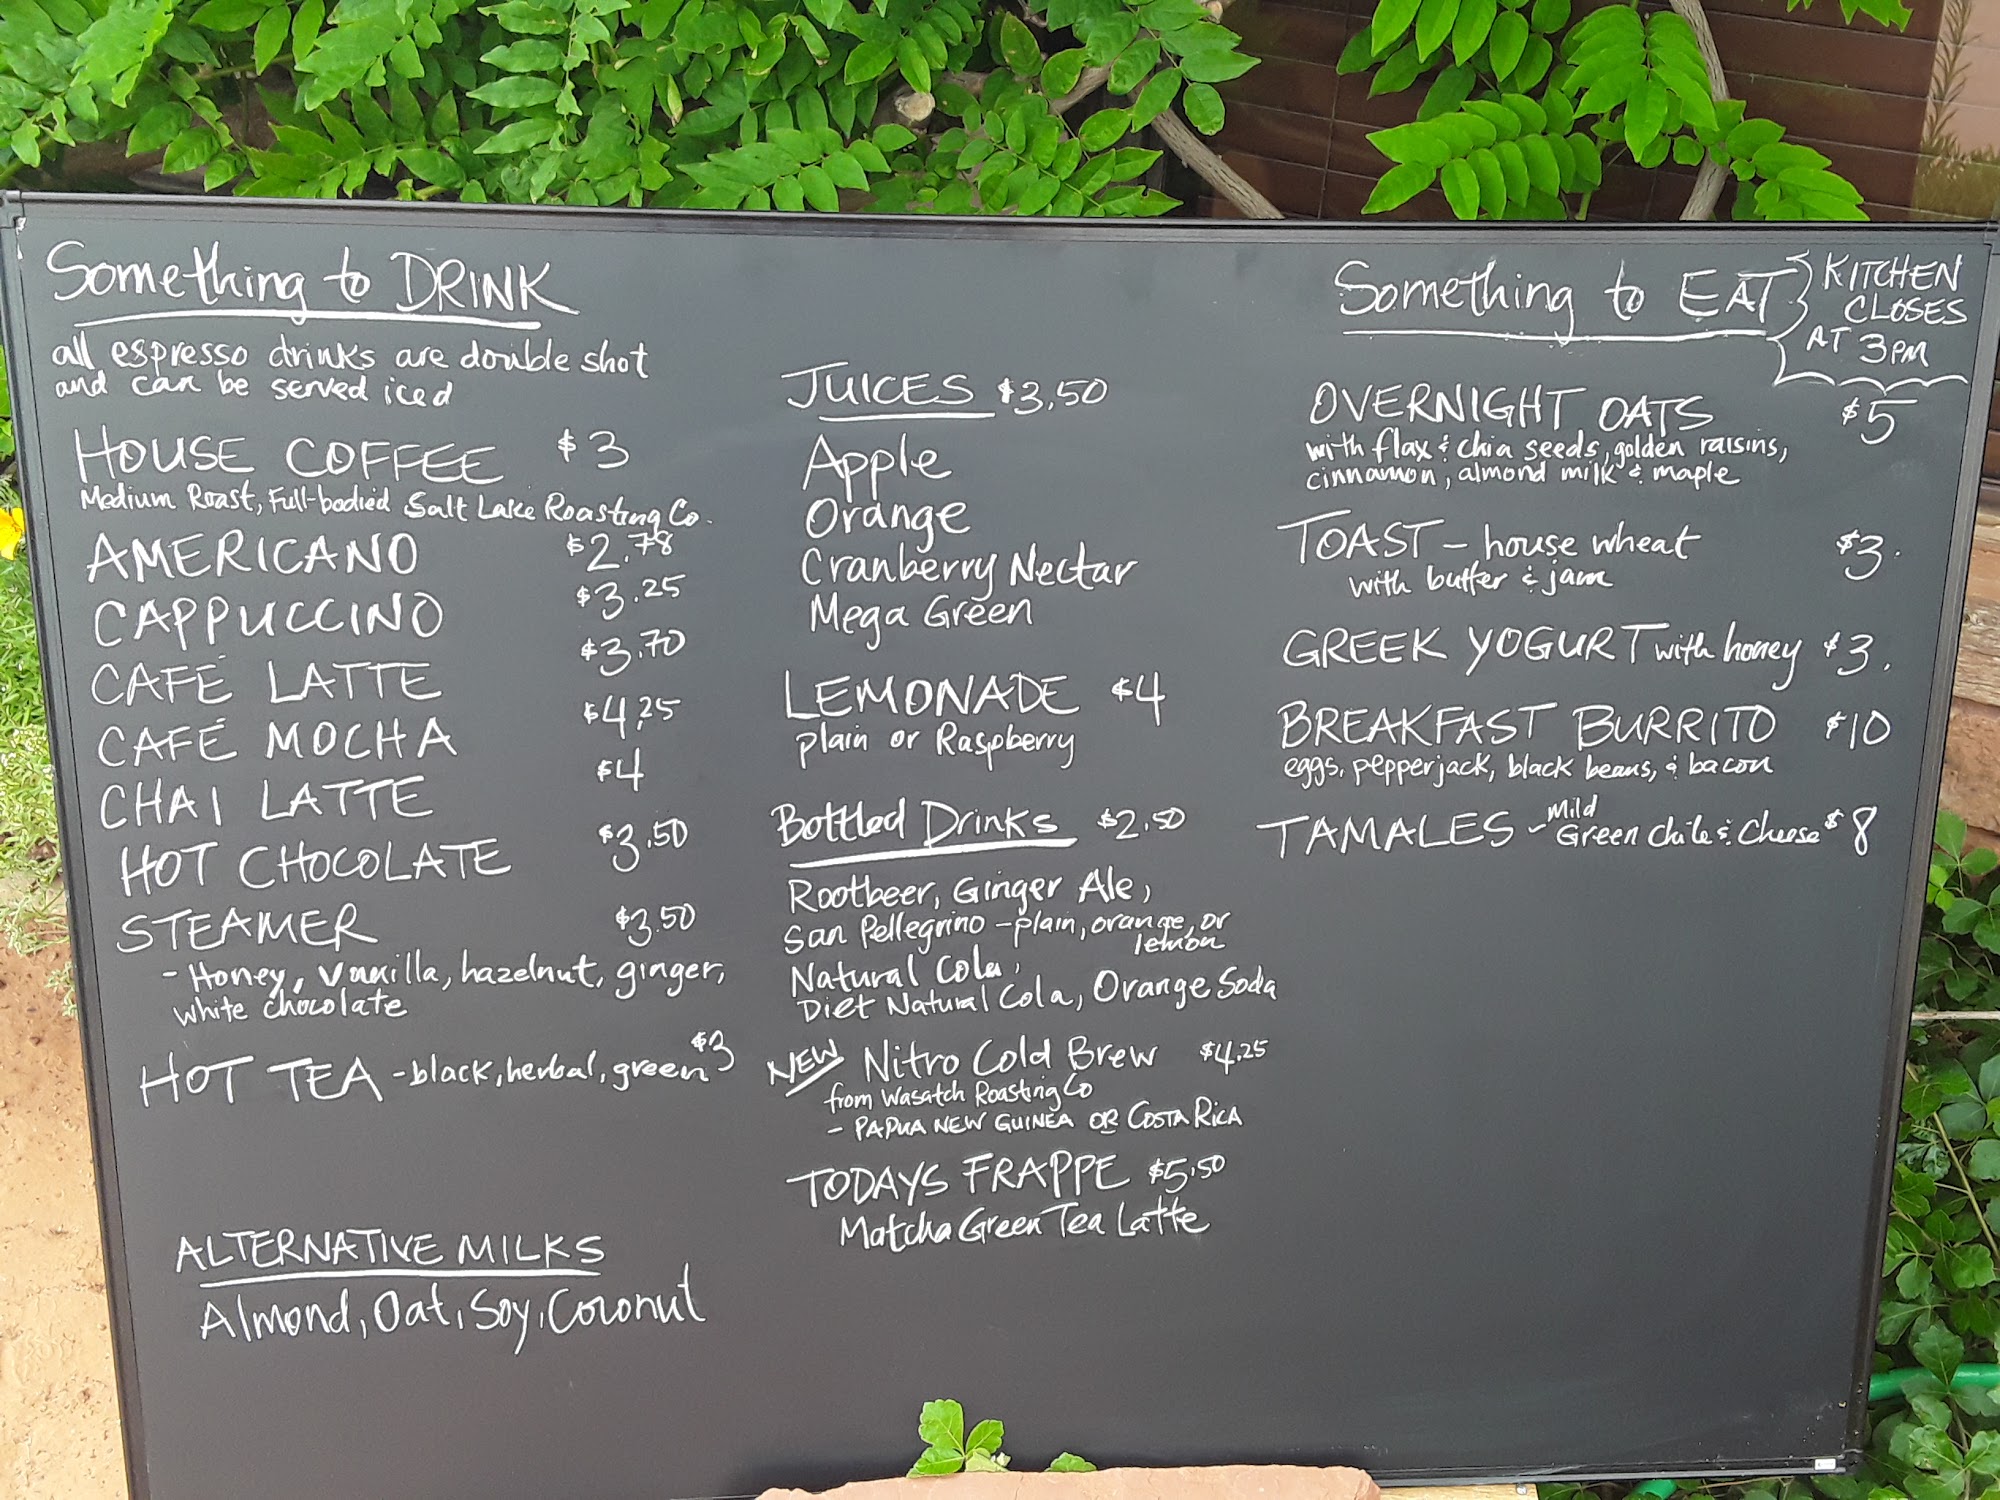 Something to DRINK
all espresso drinks are double shot
and can be served iced
HOUSE COFFEE $3
Medium Roast, Full-bodied Salt Lake Roasting Co.
AMERICANO $2.78
CAPPUCCINO $3.25
CAFÉ LATTE $3.70
CAFÉ MOCHA $4.25
CHAI LATTE $4
HOT CHOCOLATE $3.50
STEAMER $3.50
- Honey, Vanilla, hazelnut, ginger,
white chocolate
HOT TEA - black, herbal, green $3
ALTERNATIVE MILKS
Almond, Oat, Soy, Coconut
JUICES $3.50
Apple
Orange
Cranberry Nectar
Mega Green
LEMONADE $4
plain or Raspberry
Bottled Drinks $2.50
Rootbeer, Ginger Ale,
San Pellegrino - plain, orange, or
lemon
Natural Cola,
Diet Natural Cola, Orange Soda
NEW Nitro Cold Brew $4.25
from Wasatch Roasting Co
- PAPUA NEW GUINEA OR COSTA RICA
TODAYS FRAPPE $5.50
Matcha Green Tea Latte
Something to EAT
KITCHEN
CLOSES
AT 3PM
OVERNIGHT OATS $5
with flax & chia seeds, golden raisins,
cinnamon, almond milk & maple
TOAST - house wheat $3.
with butter & jam
GREEK YOGURT with honey $3.
BREAKFAST BURRITO $10
eggs, pepperjack, black beans, & bacon
TAMALES - Mild
Green Chile & Cheese $8